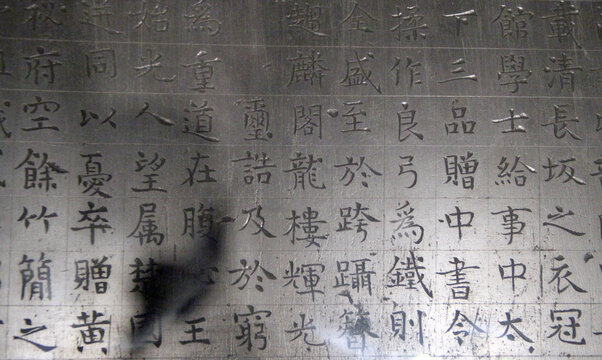 載清長坂之衣冠
館學士給事中太
下三品贈中書令
操作良弓為鐵則
全盛至於跨躡簪
麟閣龍樓輝光
璽誥及於窮
為重道在腹王
始光人望属
同以憂卒贈黃
秘府空餘竹簡之